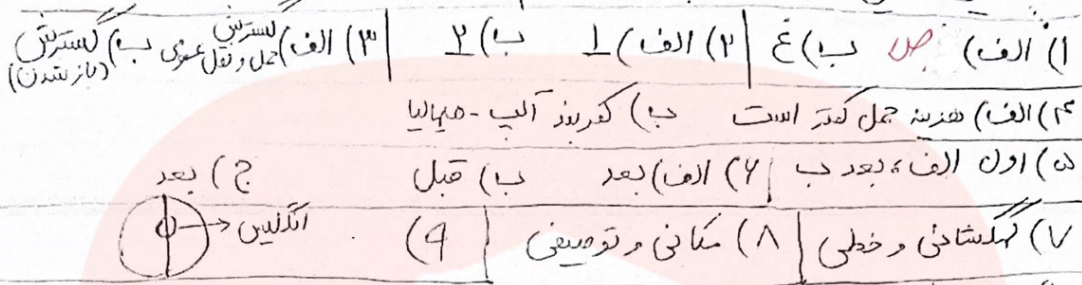 ۱) الف) ص ب) غ | ۲) الف) 1 ب) 2 | ۳) الف) گسترش حمل و نقل عمومی ب) گسترش (باز شدن)
۴) الف) هزینه حمل کمتر است ب) کمربند آلپ - هیمالیا
۵) اول الف، بعد ب | ۶) الف) بعد ب) قبل ج) بعد
۷) کهکشانی و خطی | ۸) مکانی و توصیفی | ۹) انگلیس